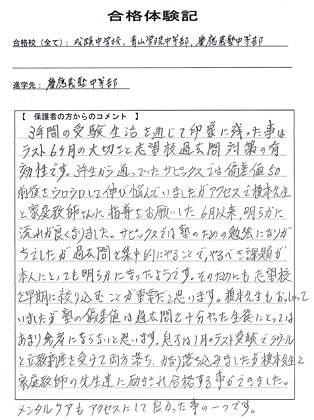 合格体験記
合格校(全て): 成蹊中学校、青山学院中等部、慶應義塾中等部
進学先: 慶應義塾中等部
【 保護者の方からのコメント 】
3年間の受験生活を通じて印象に残った事は
ラスト6ヶ月の大切さと志望校過去問対策の有
効性です。3年生から通っていたサピックスでは偏差値50
前後をウロウロして伸び悩んでいましたがアクセスで榎本先生
と家庭教師さんに指導をお願いした6月以来、明らかに
流れが良くなりました。サピックスでは塾のための勉強になりが
ちでしたが過去問を集中的にやることで、やるべき課題が
本人にとっても明らかになったようです。そのためにも志望校
を早期に絞り込むことが重要だと思います。榎本先生もおっしゃって
いましたが塾の偏差値は過去問を十分やった生徒にとっては
あまり参考にならないと思います。息子は1月のラスト受験でラサール
と立教新座を受けて両方落ち、かなり落ち込みましたが榎本先生と
家庭教師の先生達に励まされ合格する事ができました。
メンタルケアもアクセスにして良かった事の一つです。